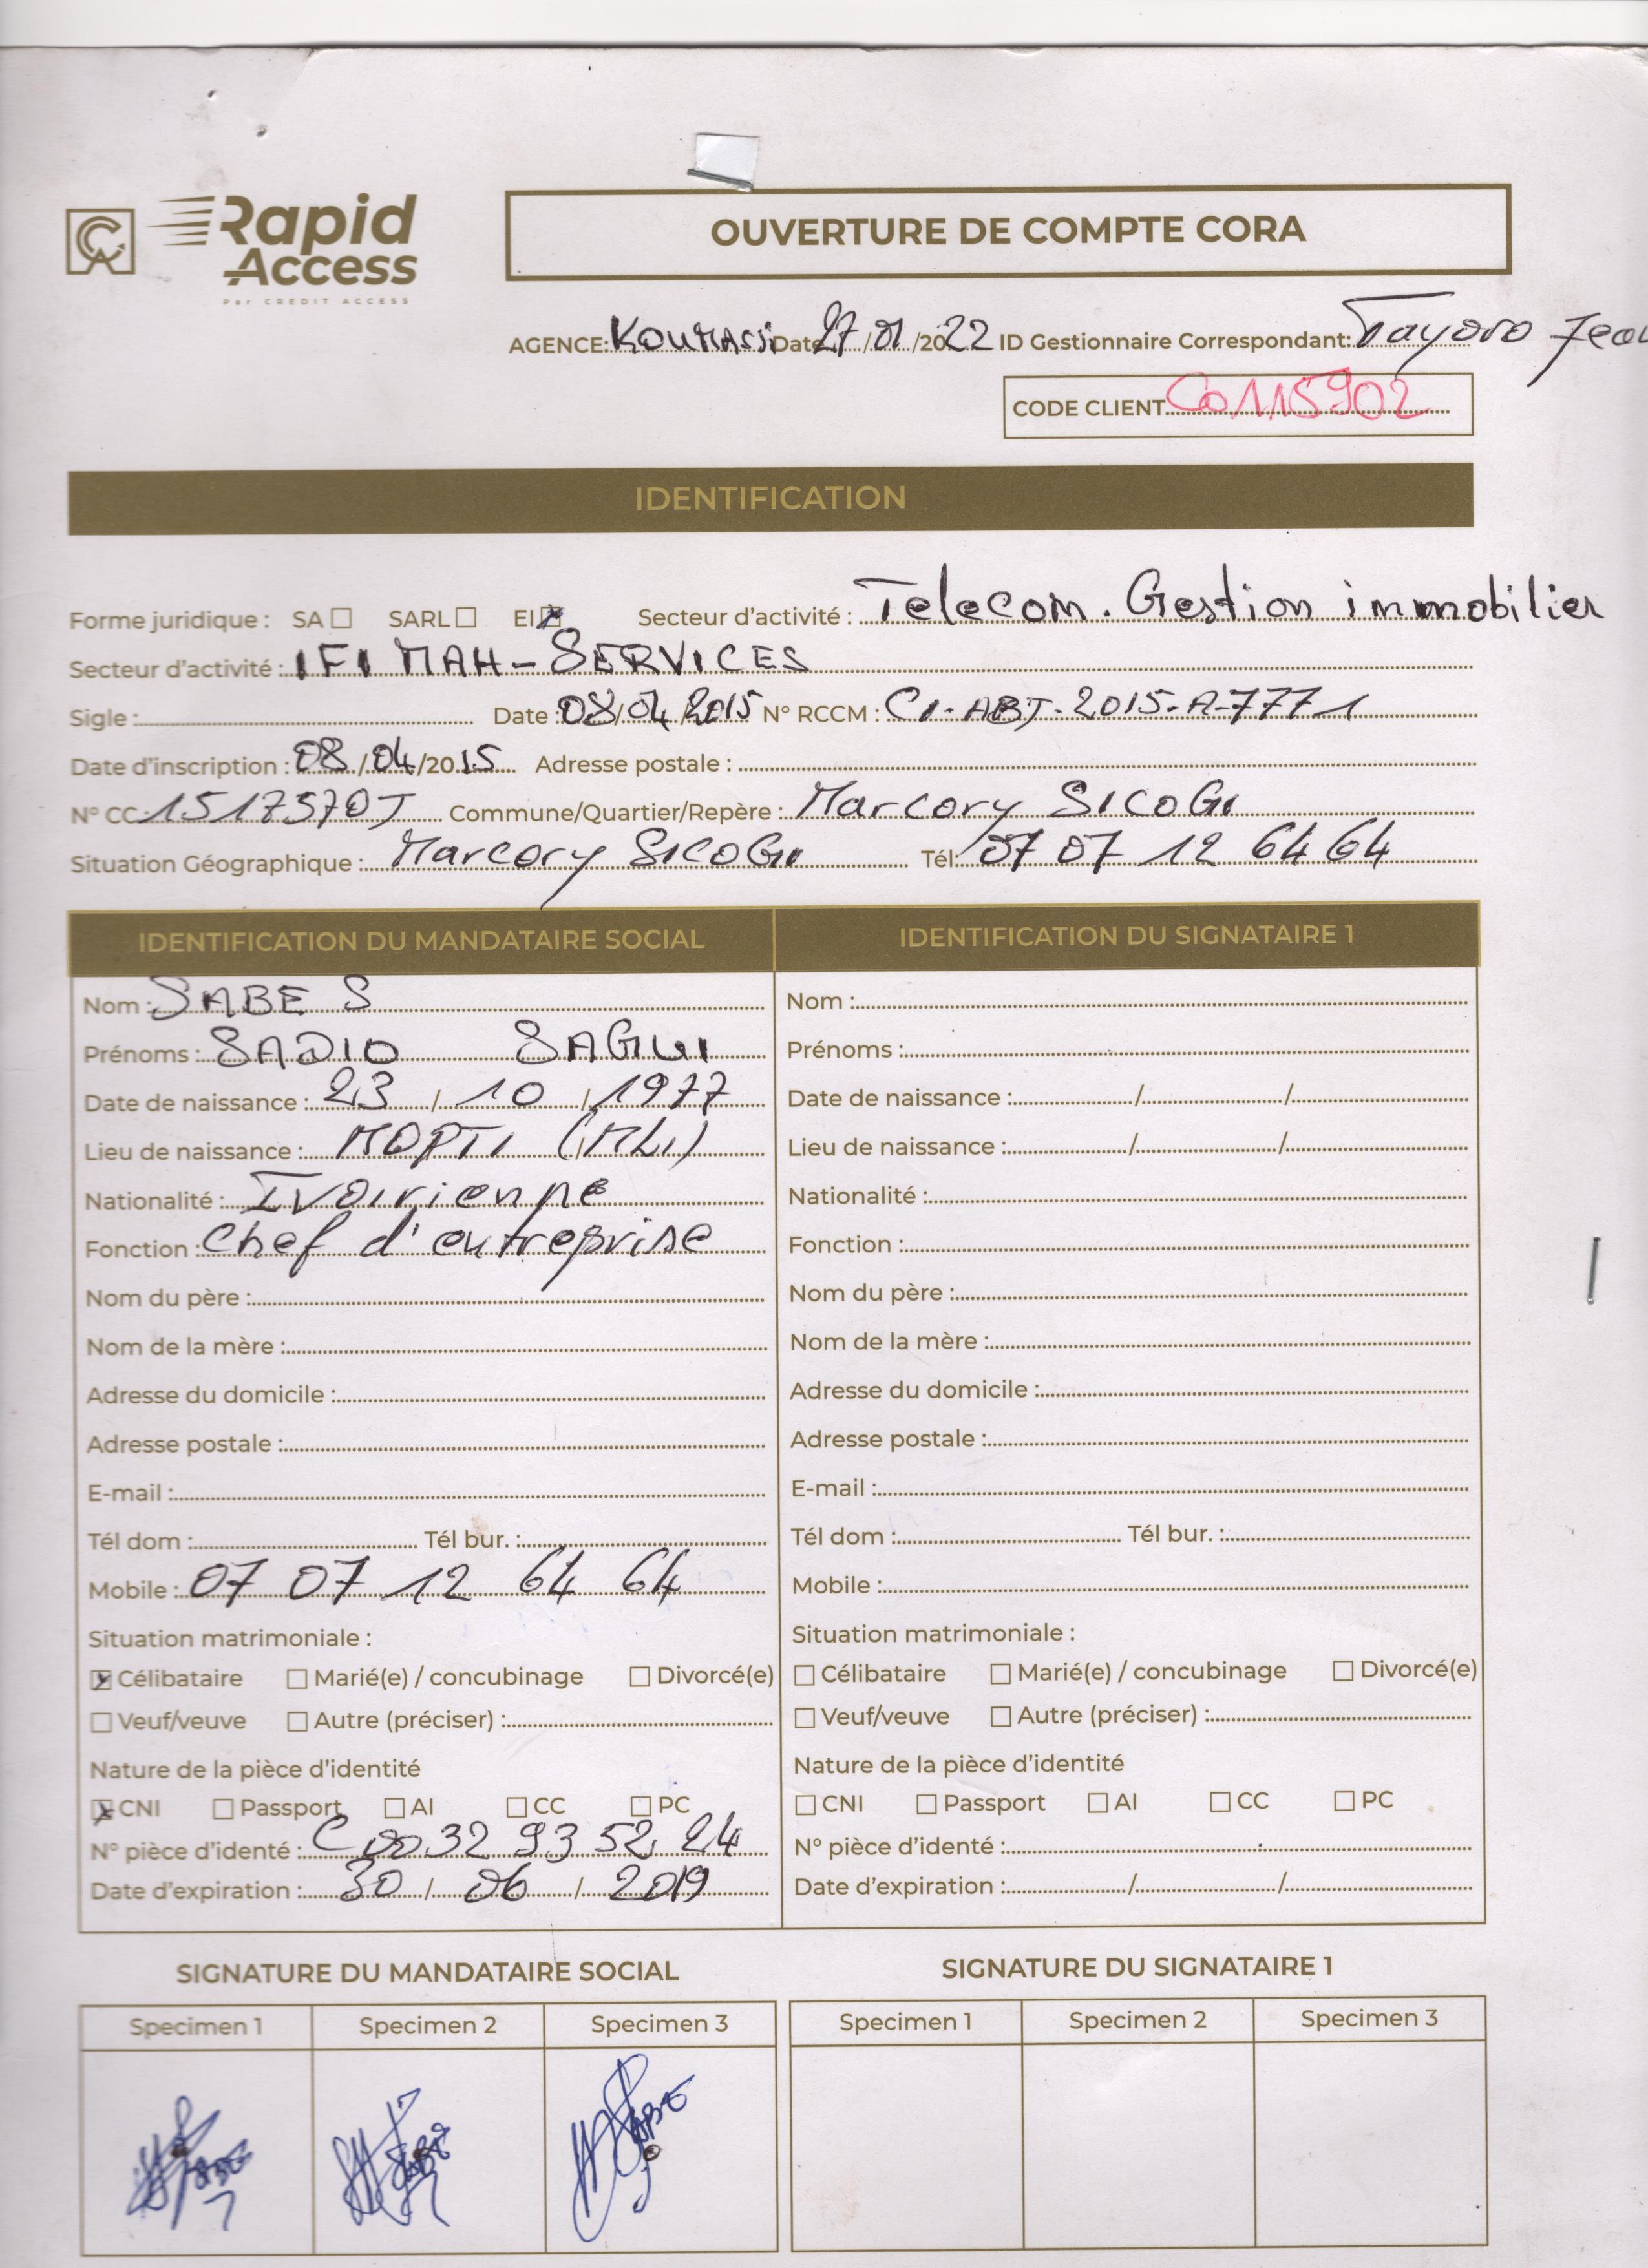 Rapid
Access
Par CREDIT ACCESS
OUVERTURE DE COMPTE CORA
AGENCE: KOUMASSI Date 27/01/2022 ID Gestionnaire Correspondant: Tayoro Jean
CODE CLIENT C0115902
IDENTIFICATION
Forme juridique : SA ☐ SARL ☐ EI ☒ Secteur d'activité : Telecom. Gestion immobilier
Secteur d'activité : IFI MAH-SERVICES
Sigle : Date : 08/04/2015 N° RCCM : CI-ABJ-2015-A-7771
Date d'inscription : 08/04/2015 Adresse postale :
N° CC 1517570J Commune/Quartier/Repère : Marcory SICOGI
Situation Géographique : Marcory SICOGI Tél: 07 07 12 64 64
IDENTIFICATION DU MANDATAIRE SOCIAL
Nom : SABE S
Prénoms : SADIO SAGUI
Date de naissance : 23 / 10 / 1977
Lieu de naissance : MOPTI (MLI)
Nationalité : Ivoirienne
Fonction : Chef d'entreprise
Nom du père :
Nom de la mère :
Adresse du domicile :
Adresse postale :
E-mail :
Tél dom : Tél bur. :
Mobile : 07 07 12 64 64
Situation matrimoniale :
☒ Célibataire ☐ Marié(e) / concubinage ☐ Divorcé(e)
☐ Veuf/veuve ☐ Autre (préciser) :
Nature de la pièce d'identité
☒ CNI ☐ Passport ☐ AI ☐ CC ☐ PC
N° pièce d'identé : C 0032 93 52 24
Date d'expiration : 30 / 06 / 2019
IDENTIFICATION DU SIGNATAIRE 1
Nom :
Prénoms :
Date de naissance : / /
Lieu de naissance : / /
Nationalité :
Fonction :
Nom du père :
Nom de la mère :
Adresse du domicile :
Adresse postale :
E-mail :
Tél dom : Tél bur. :
Mobile :
Situation matrimoniale :
☐ Célibataire ☐ Marié(e) / concubinage ☐ Divorcé(e)
☐ Veuf/veuve ☐ Autre (préciser) :
Nature de la pièce d'identité
☐ CNI ☐ Passport ☐ AI ☐ CC ☐ PC
N° pièce d'identé :
Date d'expiration : / /
SIGNATURE DU MANDATAIRE SOCIAL
Specimen 1 Specimen 2 Specimen 3
SIGNATURE DU SIGNATAIRE 1
Specimen 1 Specimen 2 Specimen 3